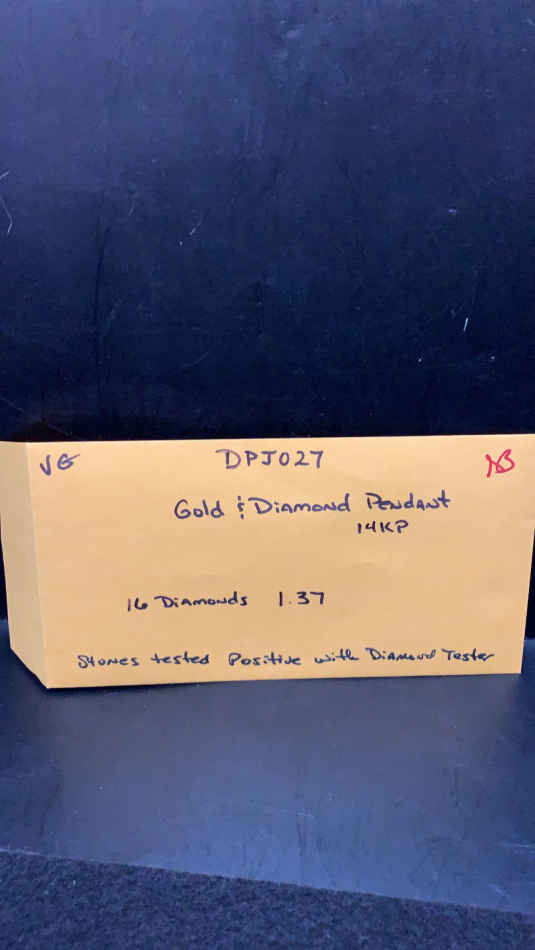 VG DPJ027 NB
Gold & Diamond Pendant
14KP
16 Diamonds 1.37
Stones tested Positive with Diamond Tester